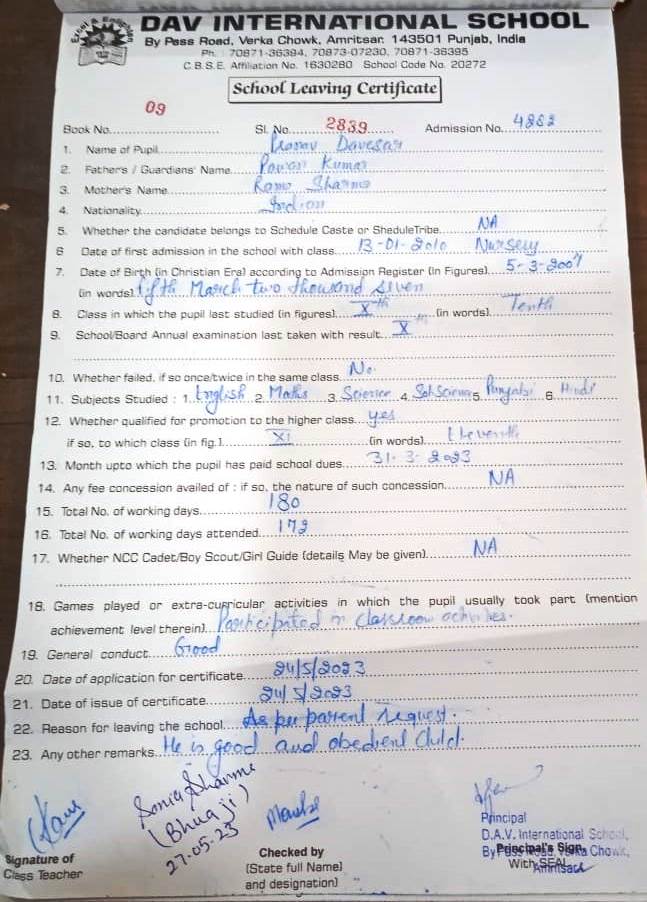 Excel & Enlighten
DAV INTERNATIONAL SCHOOL
By Pass Road, Verka Chowk, Amritsar. 143501 Punjab, India
Ph. : 70871-36394, 70873-07230, 70871-36395
C.B.S.E. Affiliation No. 1630280 School Code No. 20272
School Leaving Certificate
Book No. 09 Sl. No. 2839 Admission No. 4862
1. Name of Pupil Pranav Davesar
2. Father's / Guardians' Name Pawan Kumar
3. Mother's Name Rama Sharma
4. Nationality Indian
5. Whether the candidate belongs to Schedule Caste or SheduleTribe NA
6 Date of first admission in the school with class 13-01-2010 Nursery
7. Date of Birth (in Christian Era) according to Admission Register (In Figures) 5-3-2007
(in words) fifth March two thousand seven
8. Class in which the pupil last studied (in figures) Xth (in words) Tenth
9. School/Board Annual examination last taken with result X th
10. Whether failed, if so once/twice in the same class No.
11. Subjects Studied : 1. English 2. Maths 3. Science 4. Soh Science 5. Punjabi 6. Hindi
12. Whether qualified for promotion to the higher class yes
if so, to which class (in fig.) XI (in words) Eleventh
13. Month upto which the pupil has paid school dues 31-3-2023
14. Any fee concession availed of : if so, the nature of such concession NA
15. Total No. of working days 180
16. Total No. of working days attended 172
17. Whether NCC Cadet/Boy Scout/Girl Guide (details May be given) NA
18. Games played or extra-curricular activities in which the pupil usually took part (mention
achievement level therein) Participated in classroom activities.
19. General conduct Good
20. Date of application for certificate 24/5/2023
21. Date of issue of certificate 24/5/2023
22. Reason for leaving the school As per parent request.
23. Any other remarks He is good and obedient child.
Sonia Sharma
(Bhua ji)
27-05-23
Signature of
Class Teacher
Checked by
(State full Name)
and designation)
Principal
D.A.V. International School,
By Pass Road, Verka Chowk,
Amritsar
Principal's Sign.
With SEAL